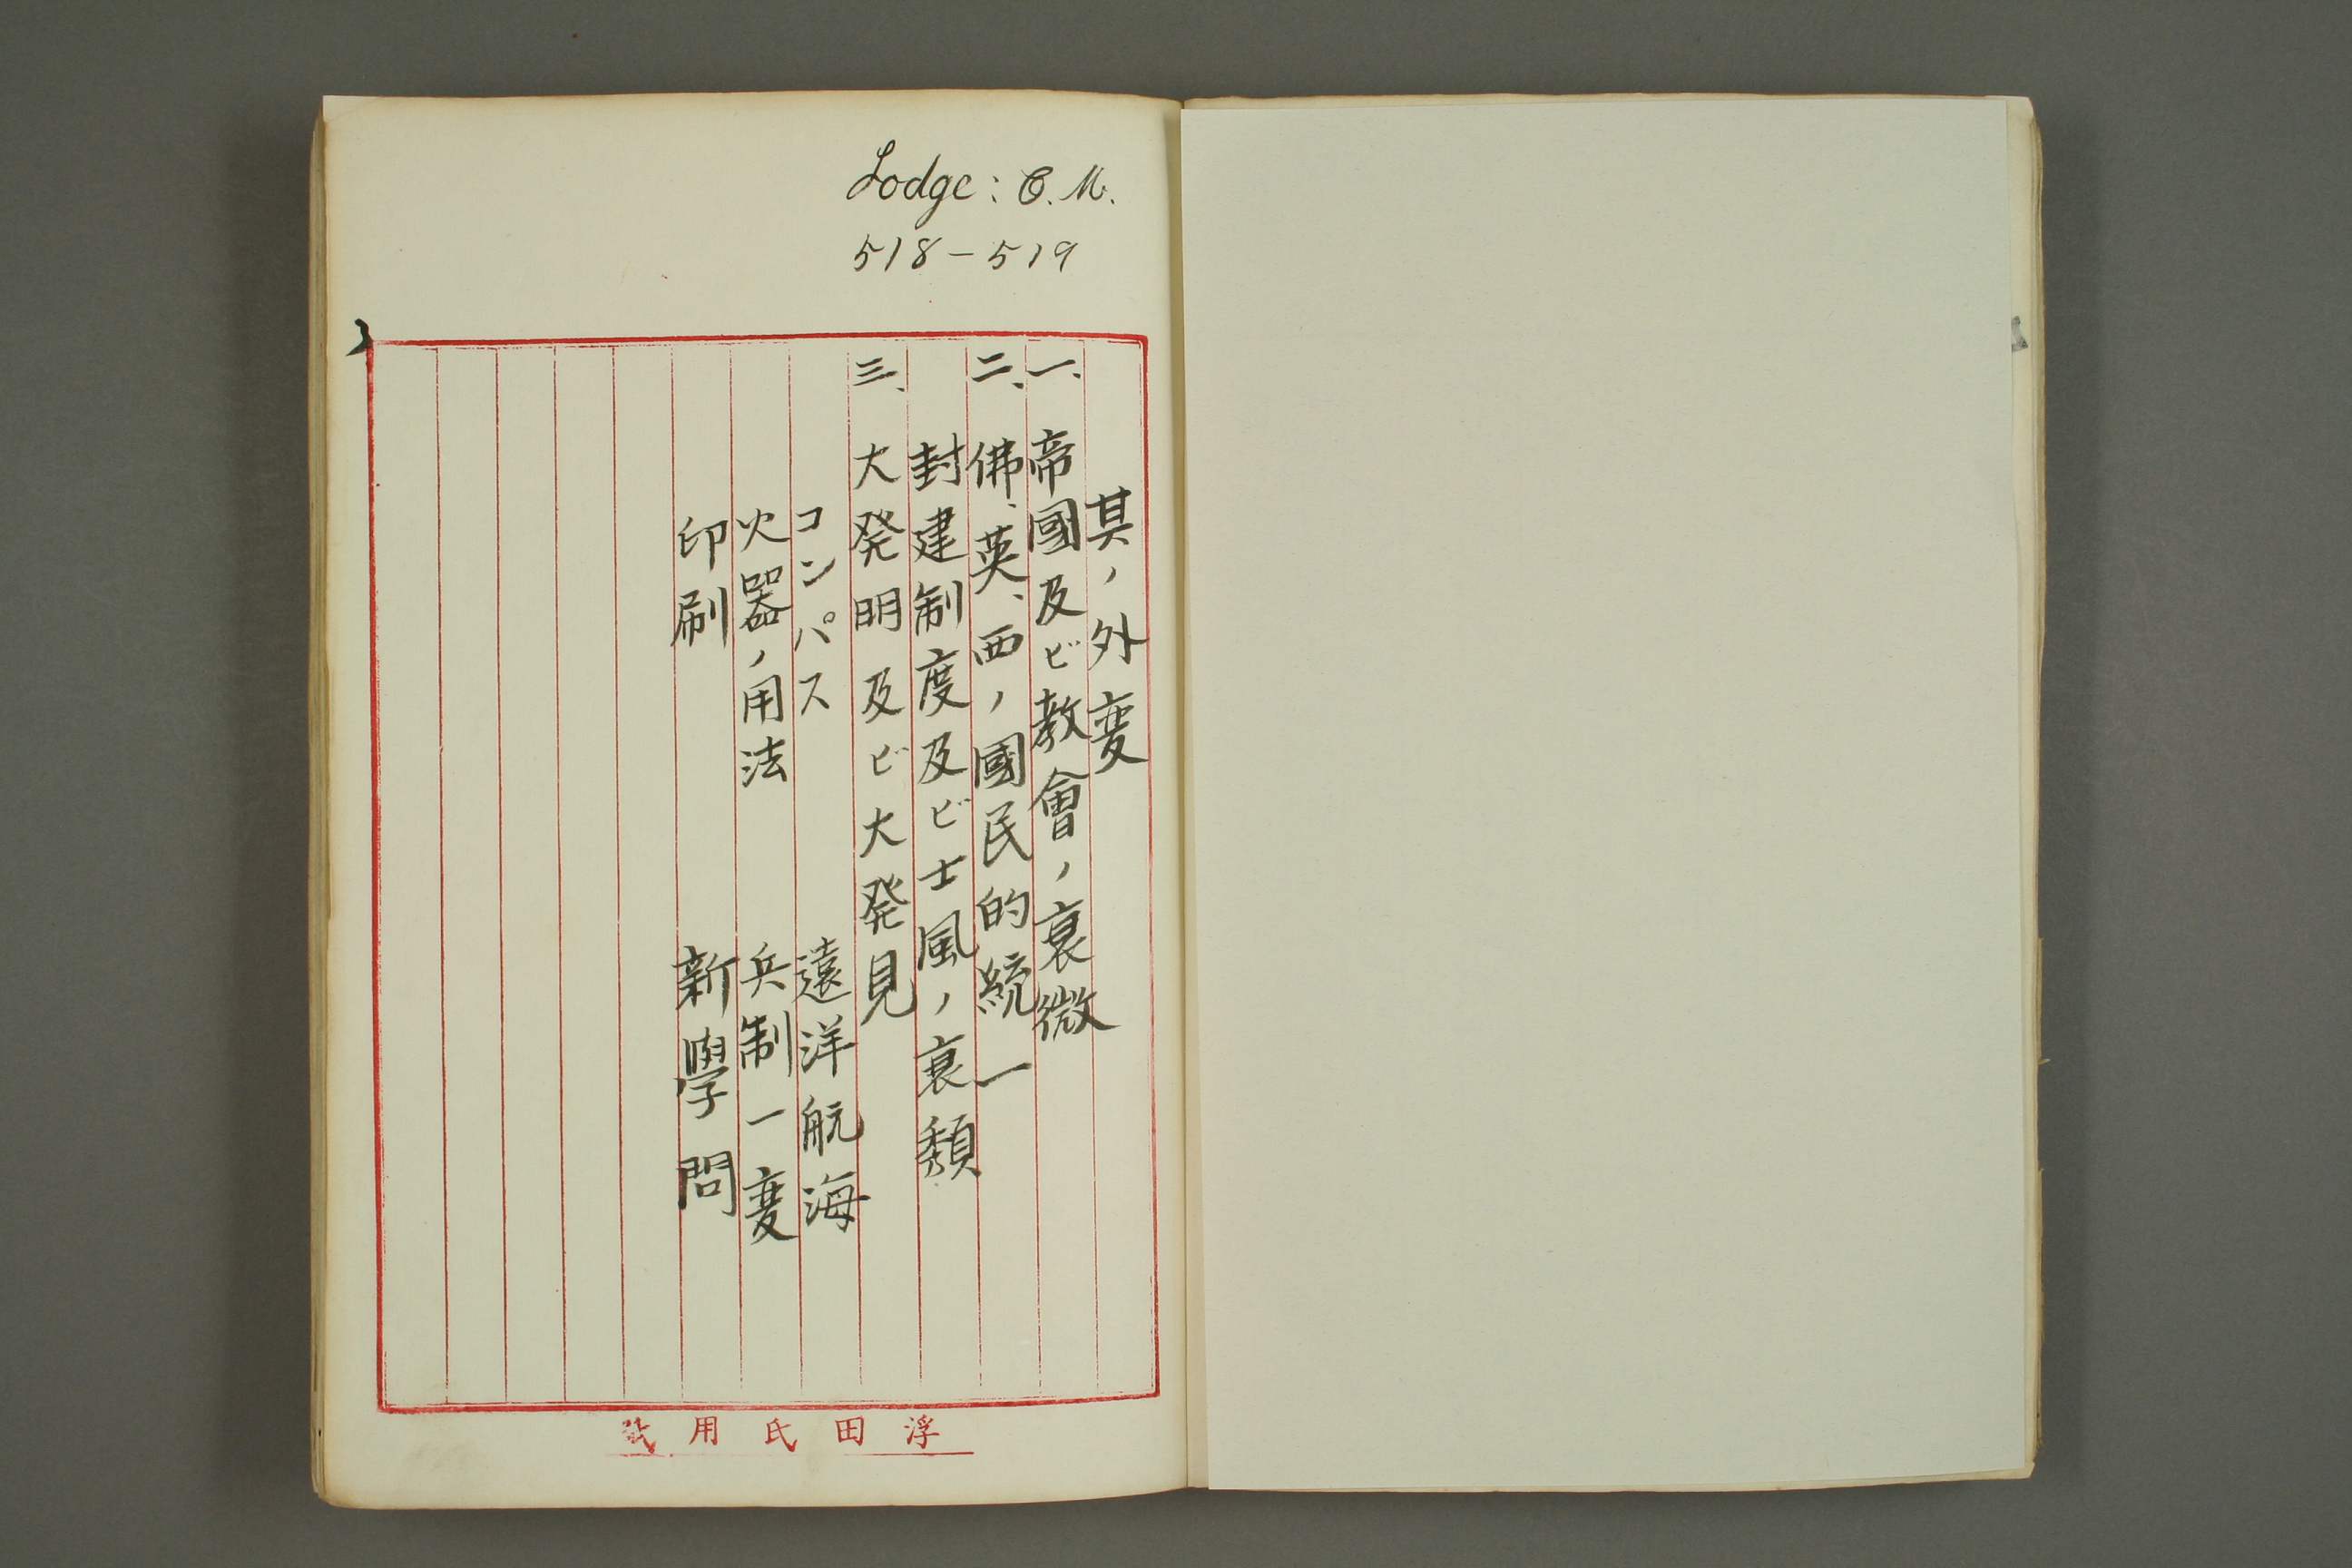 Lodge: C. M.
518-519
其ノ外変
一、帝國及ビ教會ノ衰微
二、佛、英、西ノ國民的統一
封建制度及ビ士風ノ衰頽
三、大発明及ビ大発見
コンパス 遠洋航海
火器ノ用法 兵制一変
印刷 新學問
浮田氏用